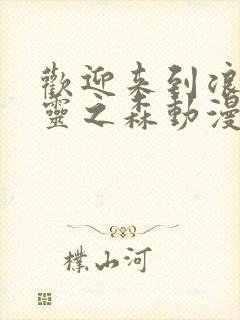 歡迎来到浪
靈之森動漫
樸山河